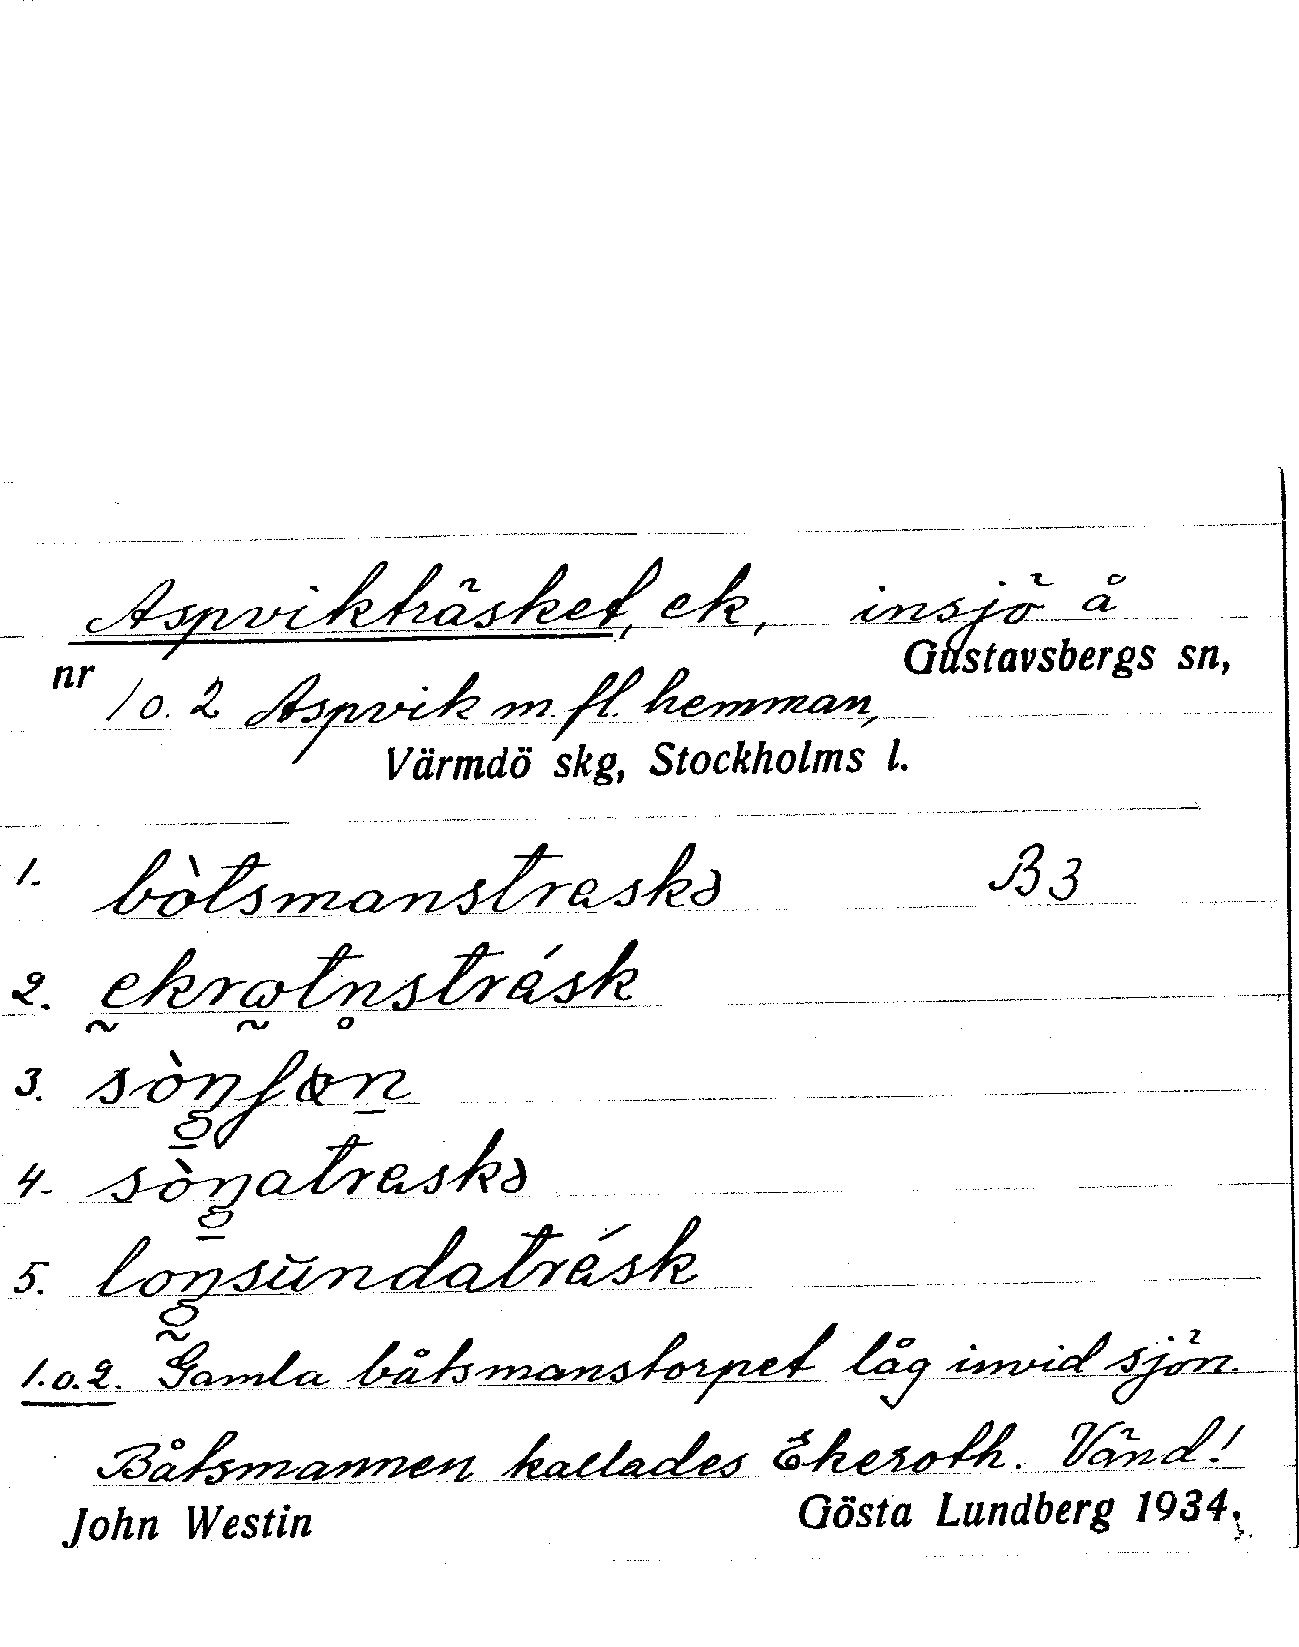 Aspvikträsket, ek, insjö å
Gustavsbergs sn,
nr 1 o. 2 Aspvik m. fl. hemman,
Värmdö skg, Stockholms l.
1. bòtsmanstraskə B3
2. ḛkrɷ̰tn̥strásk
3. sòŋʃøn
4. sòŋatraskə
5. loŋsŭndatrásk
1. o. 2. Gamla båtsmanstorpet låg invid sjön.
Båtsmannen kallades Ekeroth. Vänd!
John Westin Gösta Lundberg 1934.